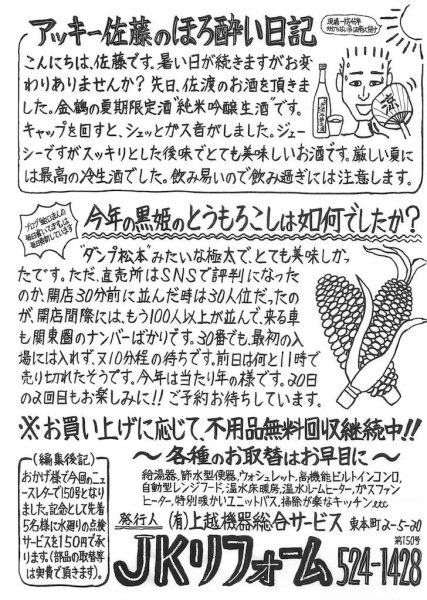 アッキー佐藤のほろ酔い日記
こんにちは、佐藤です。暑い日が続きますがお変
わりありませんか？先日、佐渡のお酒を頂きま
した。金鶴の夏期限定酒"純米吟醸生酒"です。
キャップを回すと、シュッとガス音がしました。ジュー
シーですがスッキリとした後味でとても美味しいお酒です。厳しい夏に
は最高の冷生酒でした。飲み易いので飲み過ぎには注意します。
涼
今年の黒姫のとうもろこしは如何でしたか？
"ダンプ松本"みたいな極太で、とても美味しかっ
たです。ただ、直売所はSNSで評判になった
のか、開店30分前に並んだ時は30人位だったの
が、開店間際には、もう100人以上が並んで、来る車
も関東圏のナンバーばかりです。30番でも、最初の入
場には入れず、又10分程の待ちです。前日は何と11時で
売り切れたそうです。今年は当たり年の様です。20日
の2回目もお楽しみに!!ご予約お待ちしています。
※お買い上げに応じて、不用品無料回収継続中!!
～各種のお取替はお早目に～
給湯器、節水型便器、ウォシュレット、高機能ビルトインコンロ、
自動型レンジフード、温水床暖房、温水ルームヒーター、ガスファン
ヒーター、特別暖かいユニットバス、掃除が楽なキッチンetc
（編集後記）
おかげ様で今回のニュ
ースレターで150号となり
ました。記念として先着
5名様に水廻りの点検
サービスを150円で承
ります。（部品の取替等
は実費で頂きます）。
発行人 (有)上越機器総合サービス 東本町2-5-30
第150号
JKリフォーム 524-1428